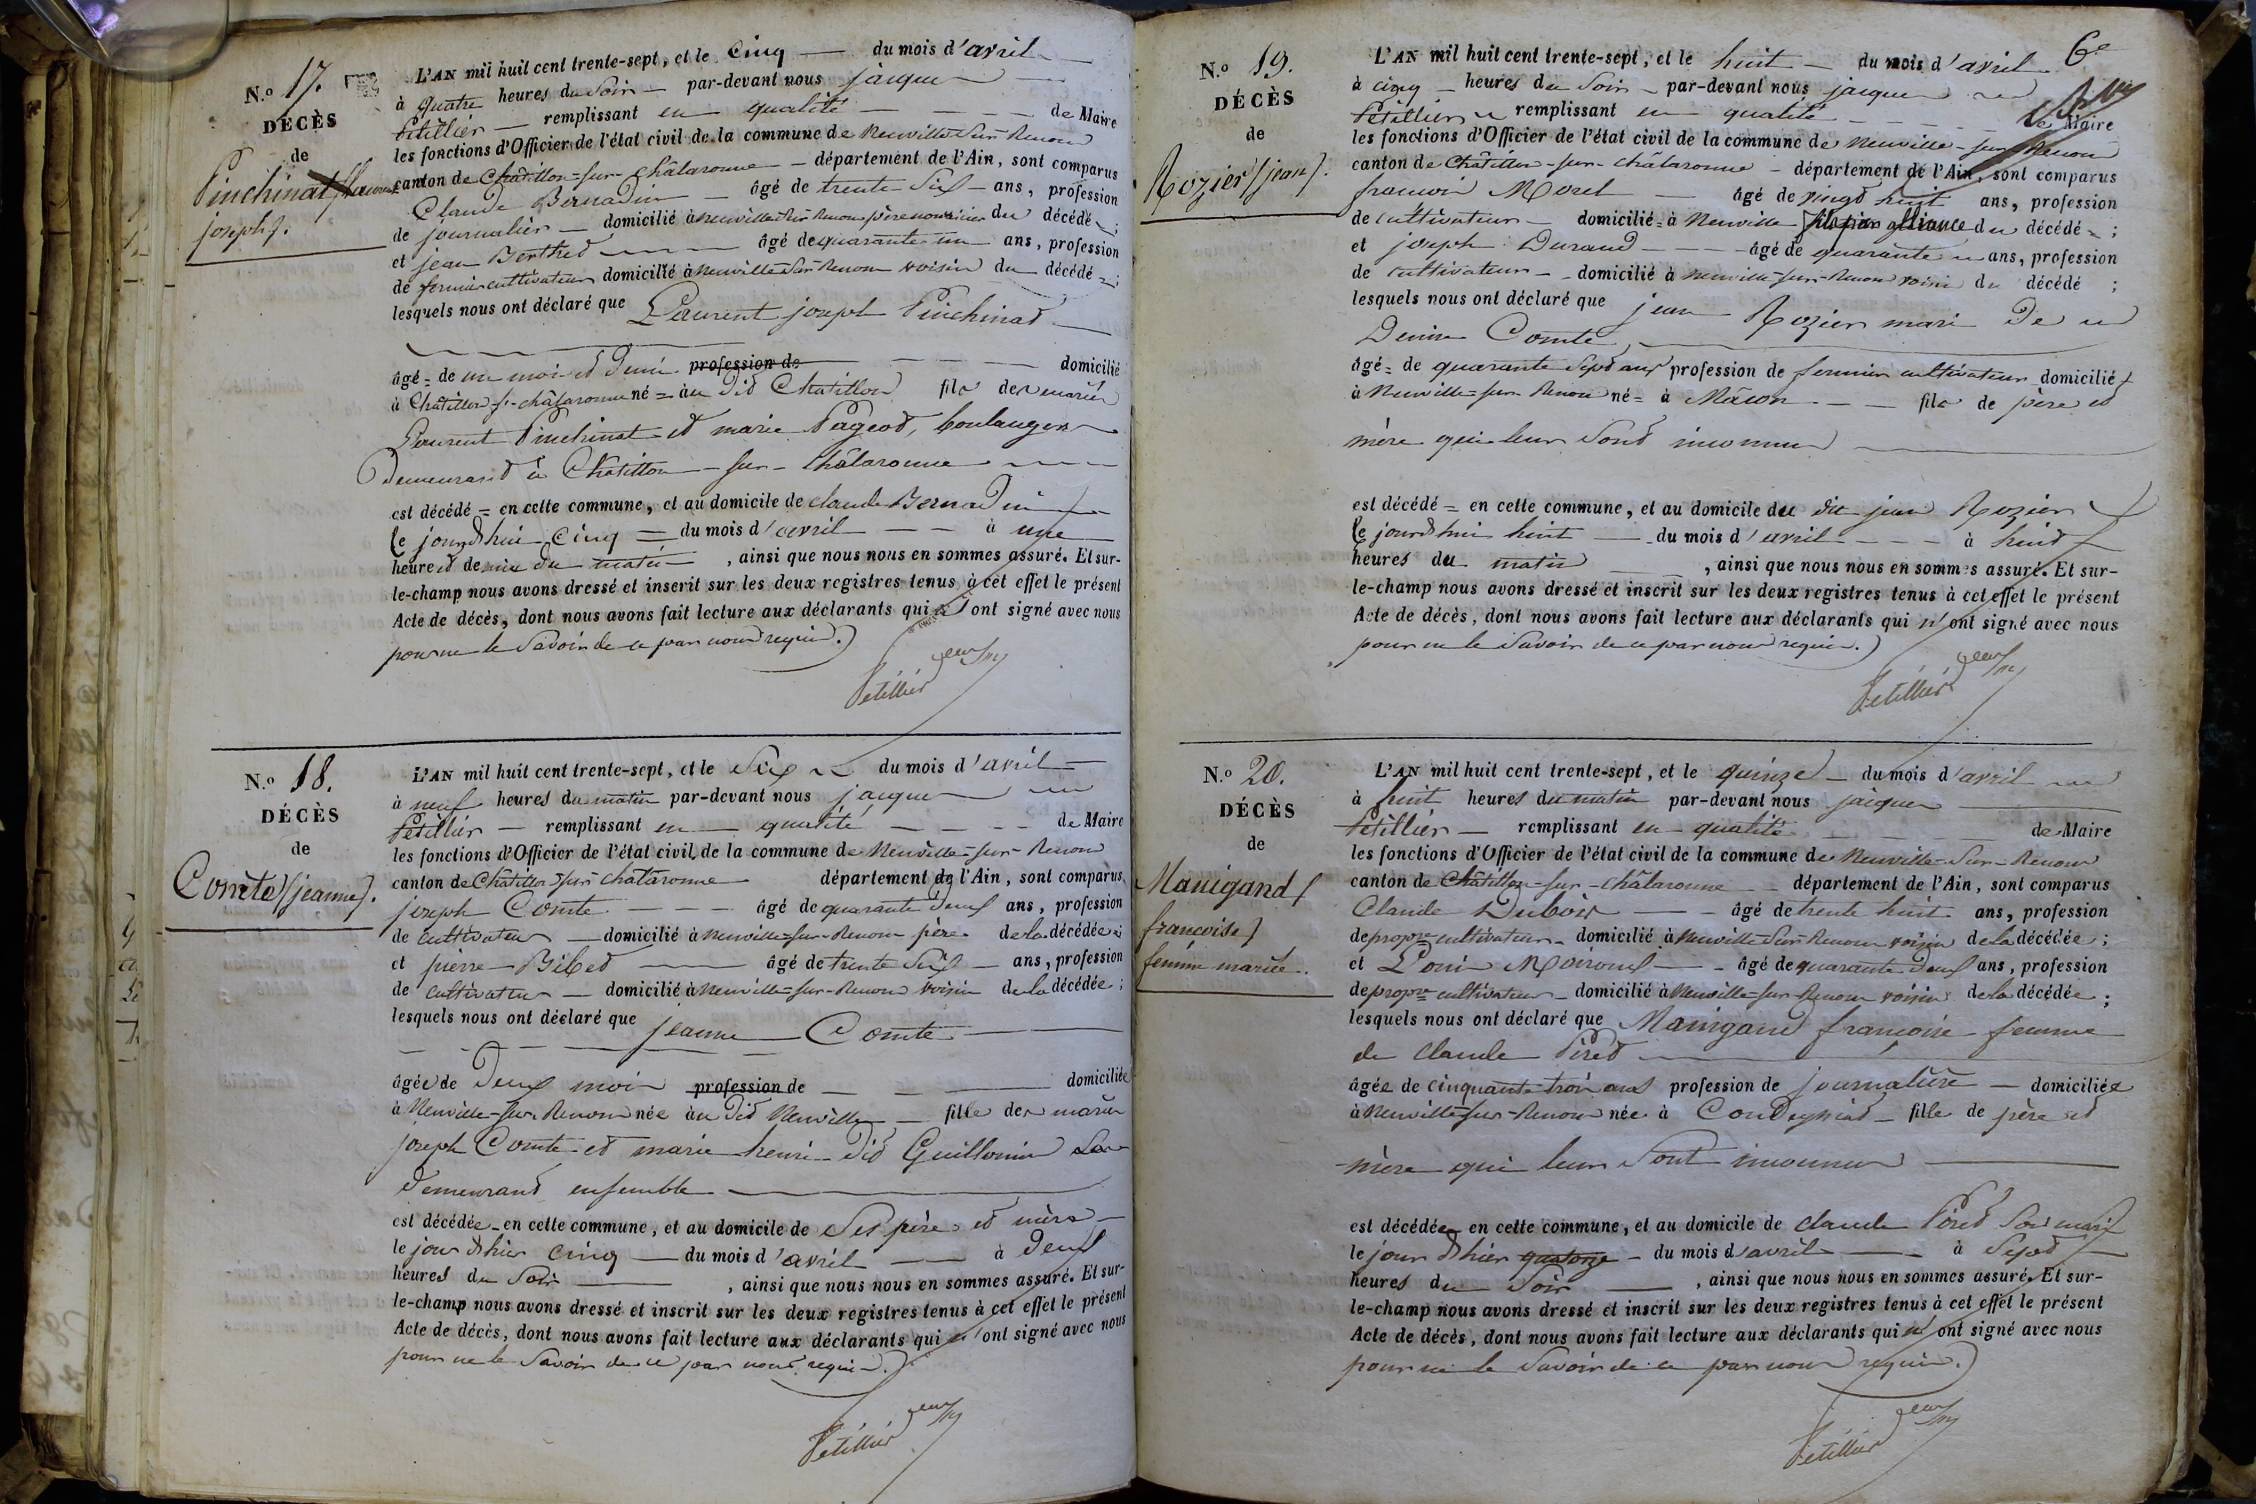 N.º 17.
DÉCÈS
de
Pinchinat (Laurent
joseph).
L'AN mil huit cent trente-sept, et le cinq du mois d'avril
à quatre heures du Soir par-devant nous jacques
Petillier remplissant en qualité de Maire
les fonctions d'Officier de l'état civil de la commune de Neuville-Sur-Renom
canton de Châtillon-sur-châlaronne département de l'Ain, sont comparus
Claude Bernadin âgé de trente Six ans, profession
de journalier domicilié à neuville-Sur-Renom père nourricier du décédé;
et jean Berthet âgé de quarante un ans, profession
de fermier cultivateur domicilié à Neuville-Sur-Renom voisin du décédé;
lesquels nous ont déclaré que Laurent joseph Pinchinat
âgé de un moi et demi profession de domicilié
à Châtillon-s-châlaronne né au dit Chatillon fils des mariés
Laurent Pinchinat et marie Pageot, boulangers
Demeurant à Châtillon-sur-Châlaronne
est décédé en cette commune, et au domicile de claude Bernadin
le jourd'hui Cinq du mois d'avril à une
heure et demie du matin, ainsi que nous nous en sommes assuré. Et sur-
le-champ nous avons dressé et inscrit sur les deux registres tenus à cet effet le présent
Acte de décès, dont nous avons fait lecture aux déclarants qui n'ont signé avec nous
pour ne le Savoir de ce par nous requis.
Petillier
N.º 18.
DÉCÈS
de
Comte (jeanne).
L'AN mil huit cent trente-sept, et le Six du mois d'avril
à neuf heures du matin par-devant nous jacques
Petillier remplissant en qualité de Maire
les fonctions d'Officier de l'état civil de la commune de Neuville-sur-Renom
canton de Châtillon-sur-châlaronne département de l'Ain, sont comparus
joseph Comte âgé de quarante deux ans, profession
de cultivateur domicilié à Neuville-sur-Renom père de la décédée;
et pierre Bibet âgé de trente Six ans, profession
de cultivateur domicilié à Neuville-sur-Renom voisin de la décédée;
lesquels nous ont déclaré que jeanne Comte
âgée de Deux moi profession de domiciliée
à Neuville-sur-Renom née au dit Neuville fille des mariés
joseph Comte et marie henri dit Guillomin
Demeurant ensemble
est décédée en cette commune, et au domicile de Ses père et mère
le jour d'hier cinq du mois d'avril à Deux
heures du Soir, ainsi que nous nous en sommes assuré. Et sur-
le-champ nous avons dressé et inscrit sur les deux registres tenus à cet effet le présent
Acte de décès, dont nous avons fait lecture aux déclarants qui n'ont signé avec nous
pour ne le Savoir de ce par nous requis.
Petillier
6e
N.º 19.
DÉCÈS
de
Rozier (jean).
L'AN mil huit cent trente-sept, et le huit du mois d'avril
à cinq heures du Soir par-devant nous jacques
Petillier remplissant en qualité de Maire
les fonctions d'Officier de l'état civil de la commune de Neuville-sur-Renom
canton de Châtillon-sur-châlaronne département de l'Ain, sont comparus
françois Morel âgé de vingt huit ans, profession
de cultivateur domicilié à Neuville fils par alliance du décédé;
et joseph Durand âgé de quarante ans, profession
de cultivateur domicilié à Neuville-sur-Renom voisin du décédé;
lesquels nous ont déclaré que jean Rozier mari De
Denise Comte
âgé de quarante Sept ans profession de fermier cultivateur domicilié
à Neuville-sur-Renom né à Mâcon fils de père et
mère qui leur Sont inconnus
est décédé en cette commune, et au domicile du dit jean Rozier
le jourd'hui huit du mois d'avril à huit
heures du matin, ainsi que nous nous en sommes assuré. Et sur-
le-champ nous avons dressé et inscrit sur les deux registres tenus à cet effet le présent
Acte de décès, dont nous avons fait lecture aux déclarants qui n'ont signé avec nous
pour ne le Savoir de ce par nous requis.
Petillier
N.º 20.
DÉCÈS
de
Manigand (
francoise)
femme mariée.
L'AN mil huit cent trente-sept, et le quinze du mois d'avril
à huit heures du matin par-devant nous jacques
Petillier remplissant en qualité de Maire
les fonctions d'Officier de l'état civil de la commune de Neuville-Sur-Renom
canton de Châtillon-sur-châlaronne département de l'Ain, sont comparus
Claude Dubois âgé de trente huit ans, profession
de propre cultivateur domicilié à Neuville-Sur-Renom voisin de la décédée;
et Louis âgé de quarante Deux ans, profession
de propre cultivateur domicilié à Neuville-sur-Renom voisin de la décédée;
lesquels nous ont déclaré que Manigand francoise femme
de claude Piret
âgée de cinquante trois ans profession de journalière domiciliée
à Neuville-sur-Renom née à Condeyssiat fille de père et
mère qui leur Sont inconnus
est décédée en cette commune, et au domicile de claude Piret Son mari
le jour d'hier quatorze du mois d'avril à Sept
heures du Soir, ainsi que nous nous en sommes assuré. Et sur-
le-champ nous avons dressé et inscrit sur les deux registres tenus à cet effet le présent
Acte de décès, dont nous avons fait lecture aux déclarants qui n'ont signé avec nous
pour ne le Savoir de ce par nous requis.
Petillier